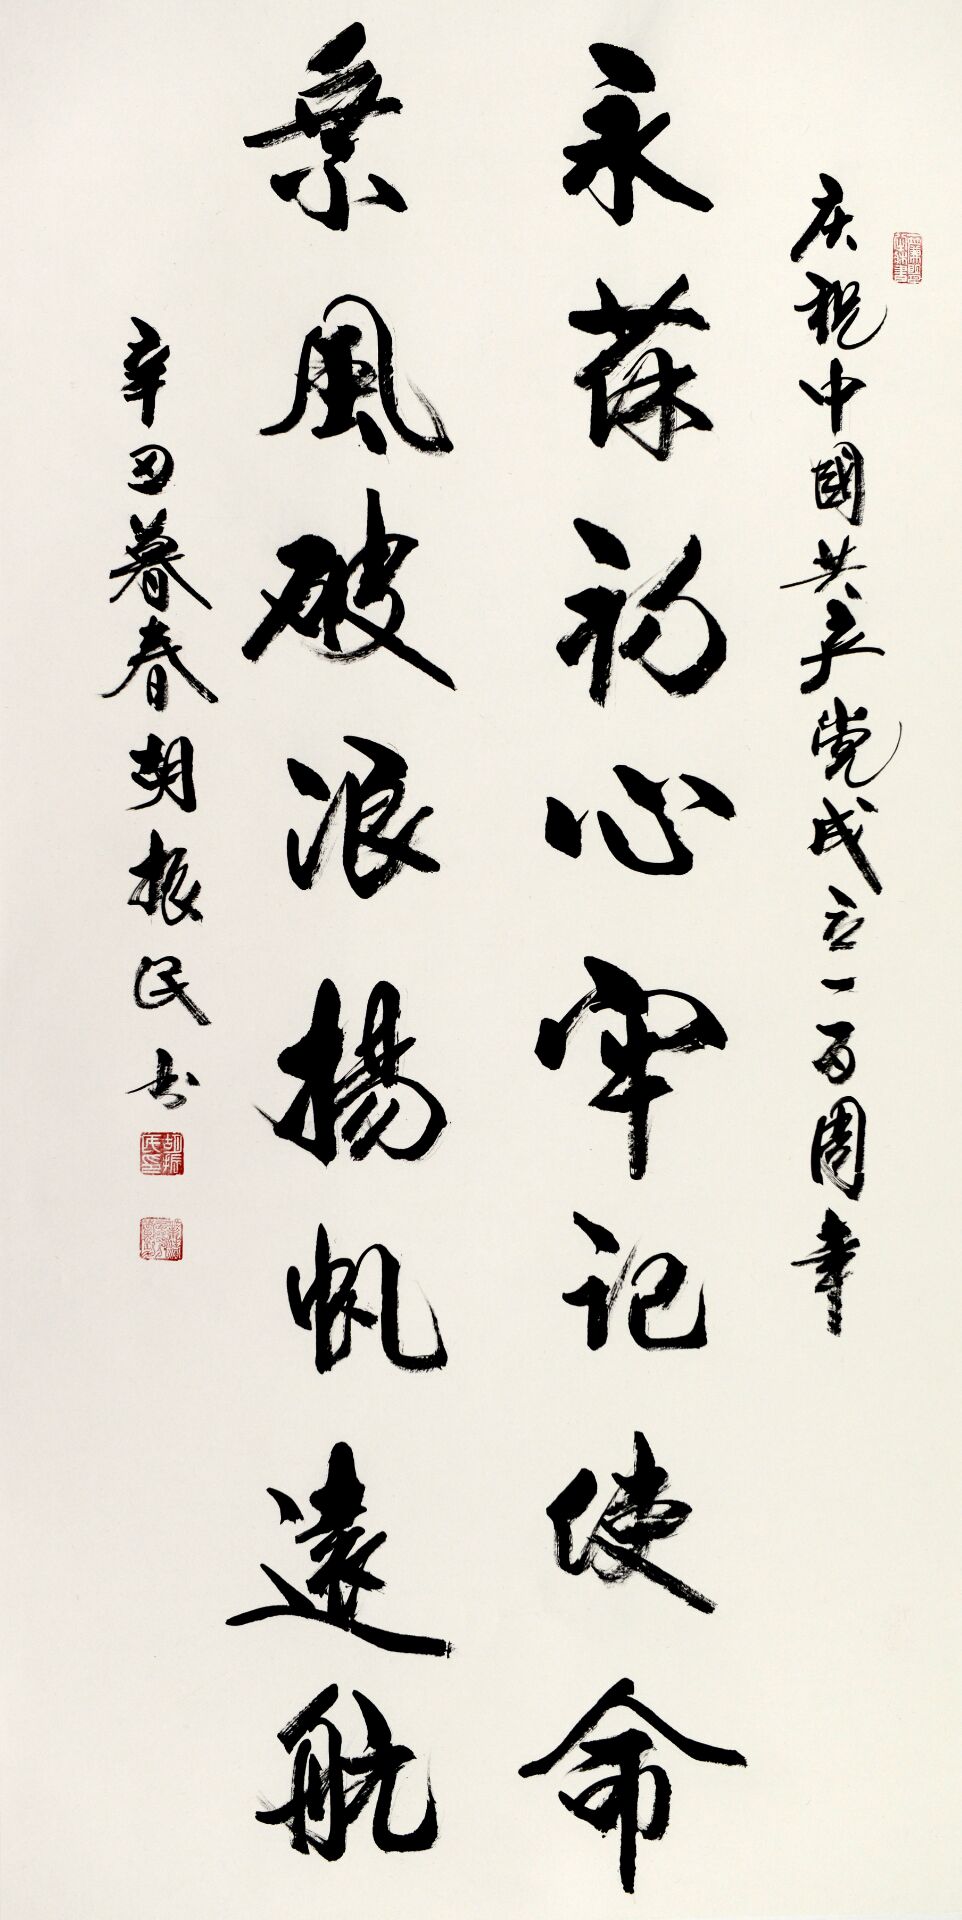 庆祝中國共产党成立一百周年
永葆初心牢记使命
乗風破浪揚帆遠航
辛丑暮春胡振民书
胡振民印